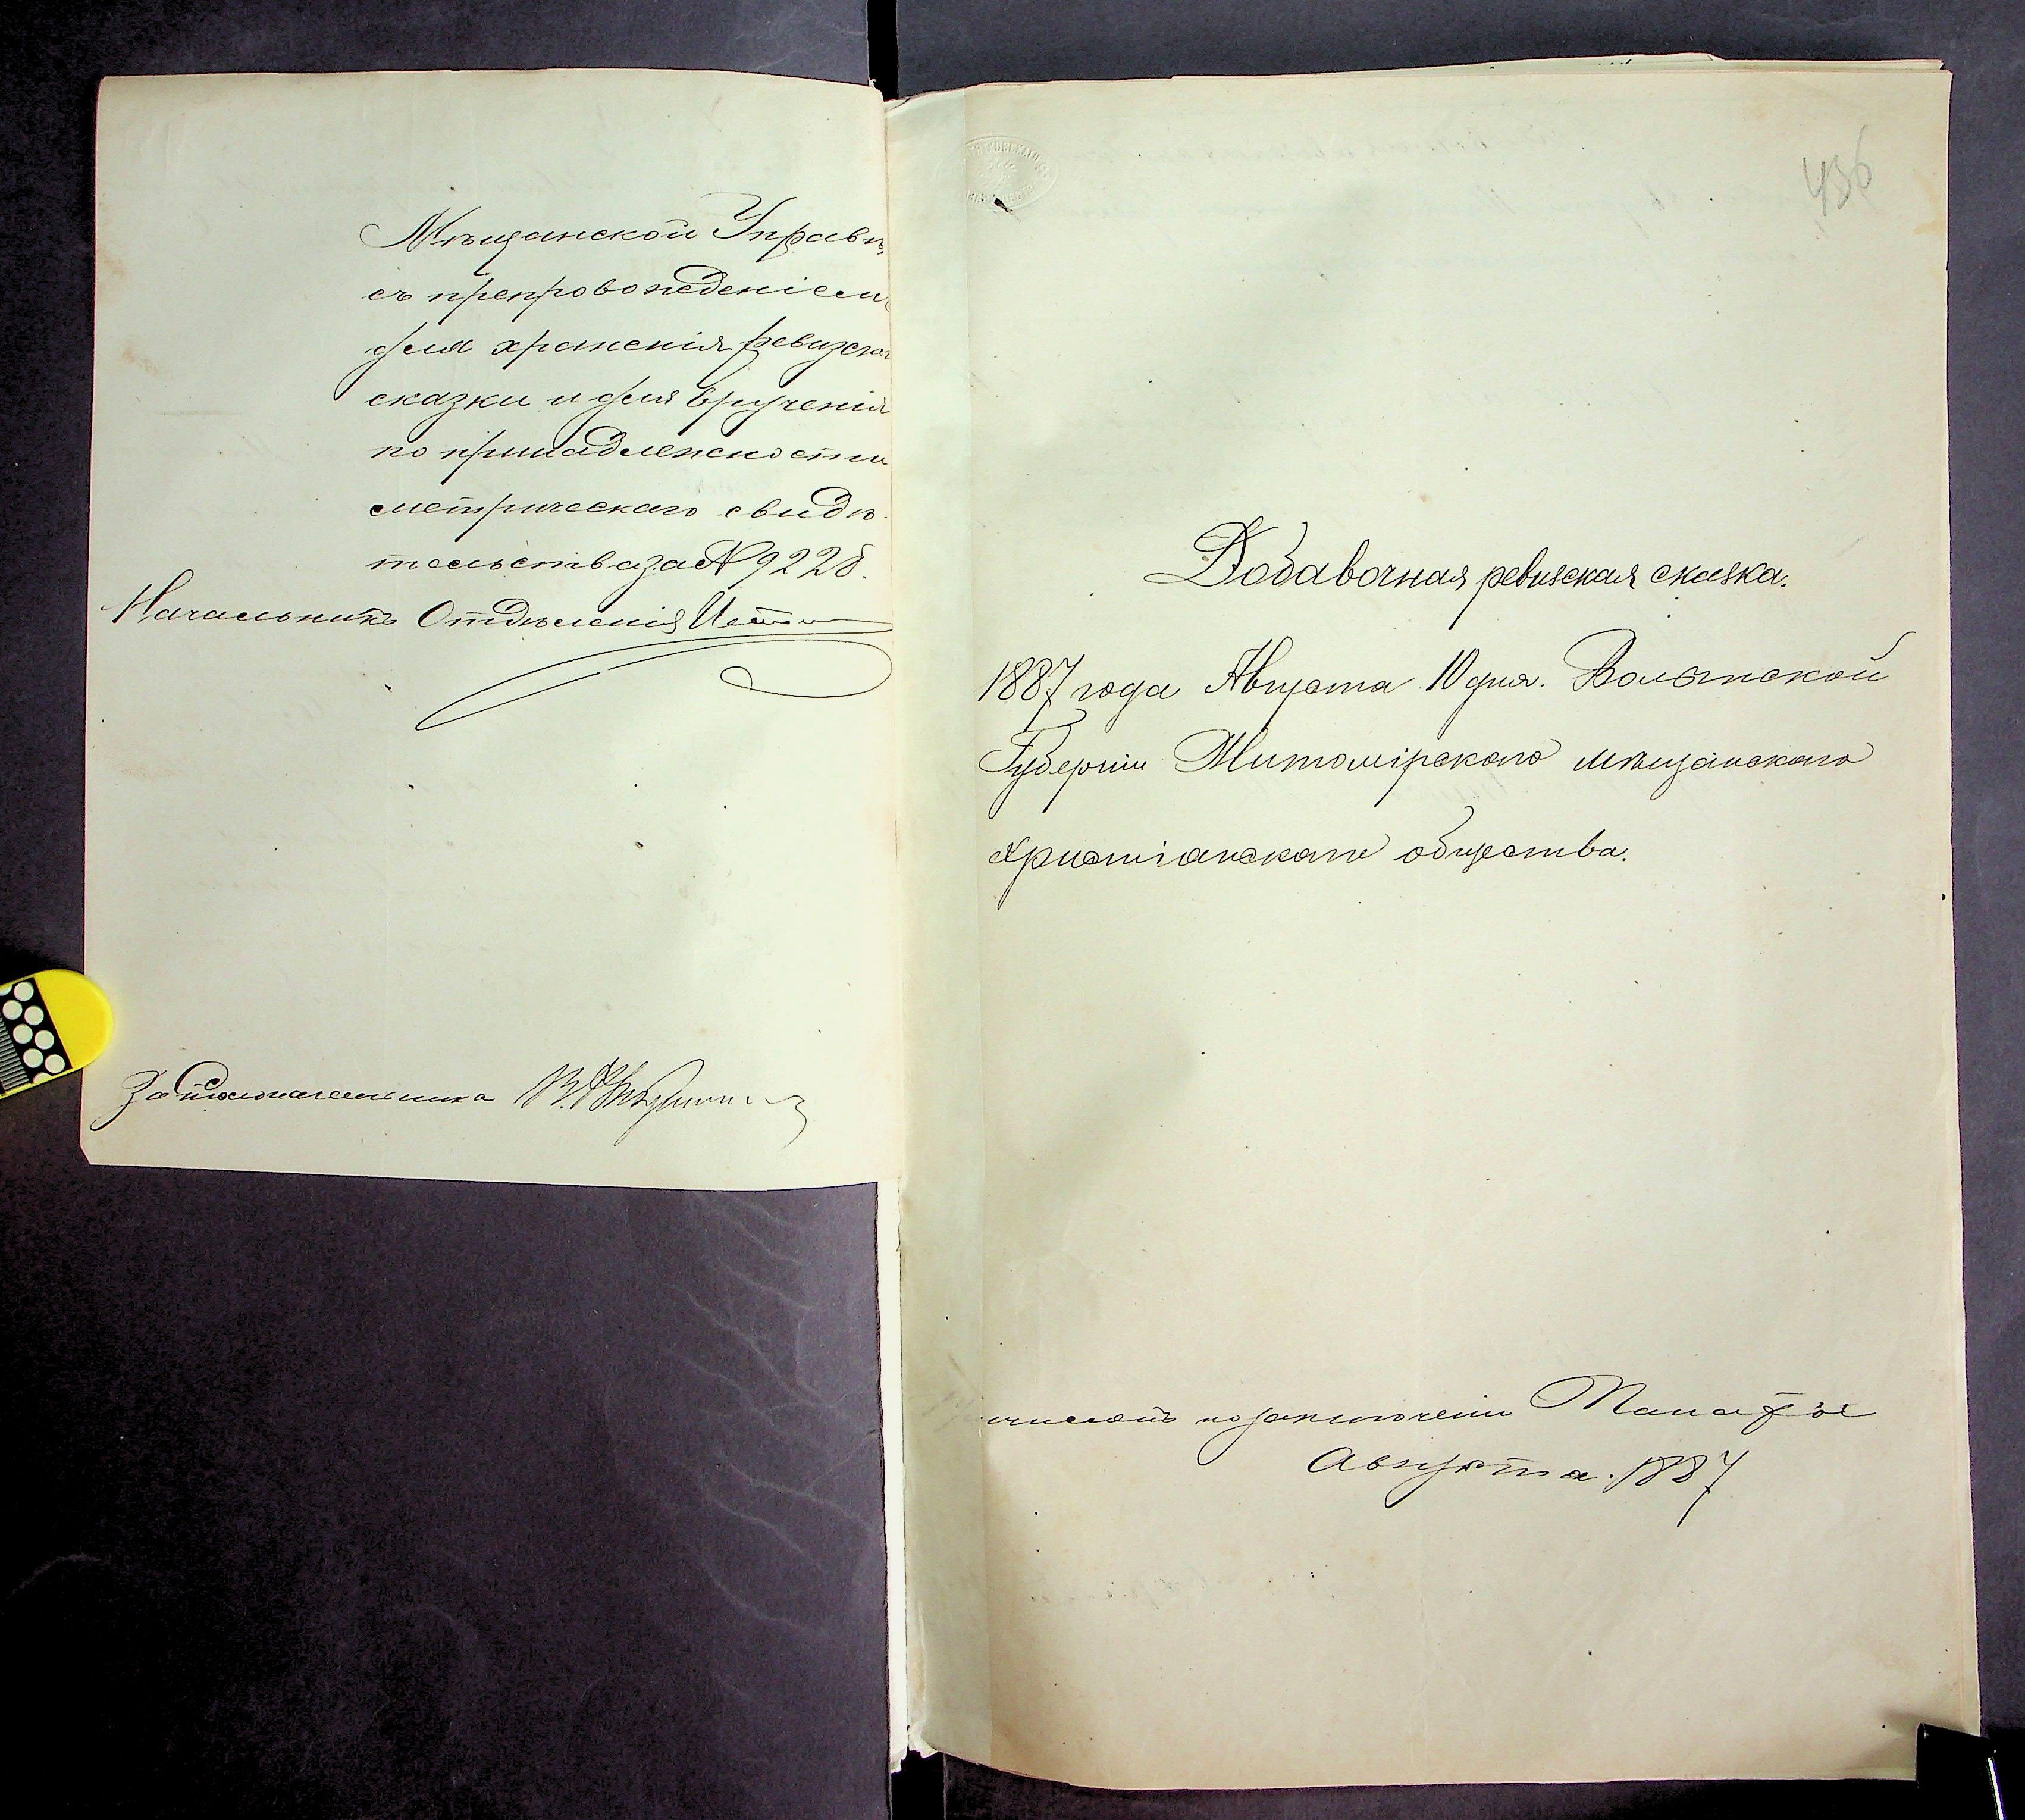 Мѣщанской Управѣ,
съ препровожденіемъ
для храненія ревизской
сказки и для врученія
по принадлежности
метрическаго свидѣ-
тельства за № 9228.
Начальникъ Отдѣленія
За Столоначальника
436
Добавочная ревизская сказка.
1887 года Августа 10 дня. Волынской
Губерніи Житомірскаго мѣщанскаго
христіанскаго общества.
по заключенію
Августа 1887